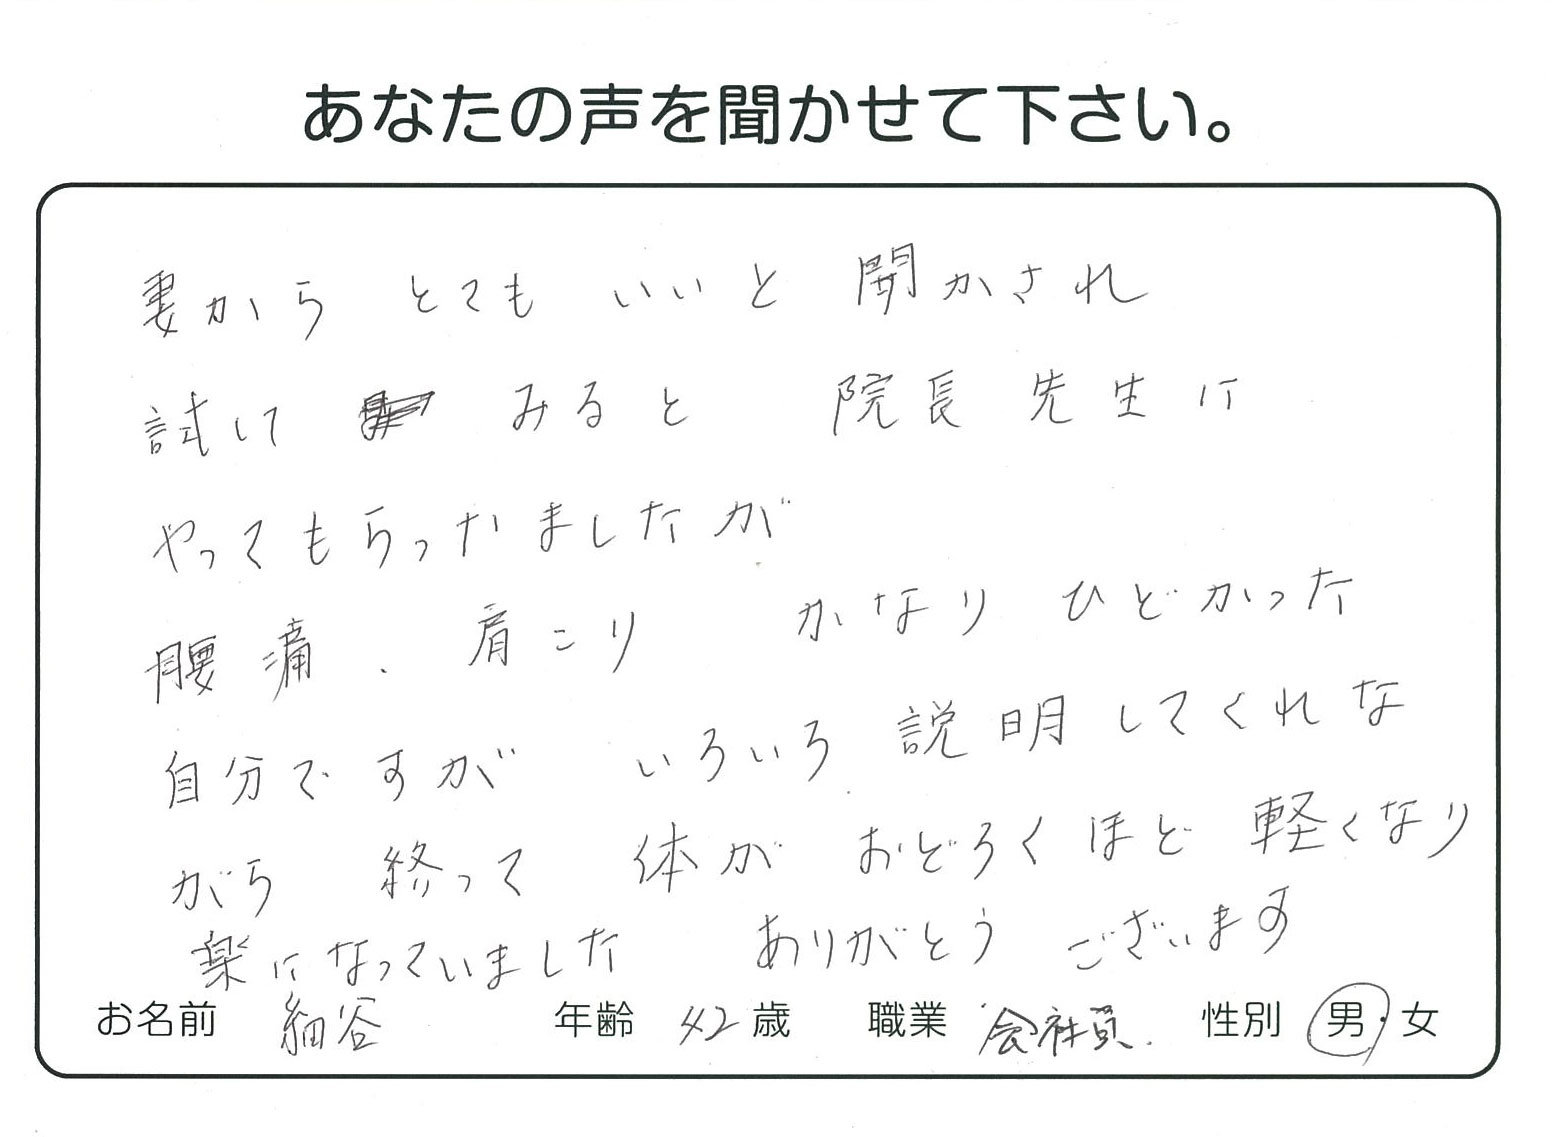 あなたの声を聞かせて下さい。
妻から とても いいと 聞かされ
試して みると 院長先生に
やってもらっかましたが
腰痛、肩こり かなり ひどかった
自分ですが いろいろ説明してくれな
がら 終って 体が おどろくほど 軽くなり
楽になっていました ありがとう ございます
お名前 細谷 年齢 42歳 職業 会社員. 性別 男・女